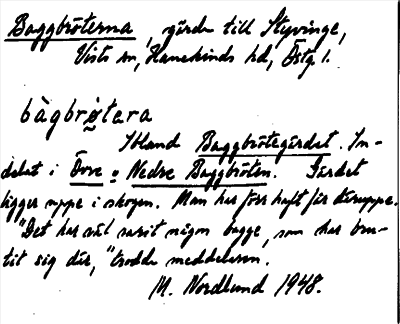 Baggbröterna, gärde till Styvinge,
Vists sn, Hanekinds hd, Östg l.
bàgbrø̀tera
Ibland Baggbrötegärdet. In-
delat i Övre o Nedre Baggbröten. Gärdet
ligger uppe i skogen. Man har förr haft får däruppe.
"Det har väl varit någon bagge, som har bru-
tit sig där," trodde meddelaren.
M. Nordlund 1948.